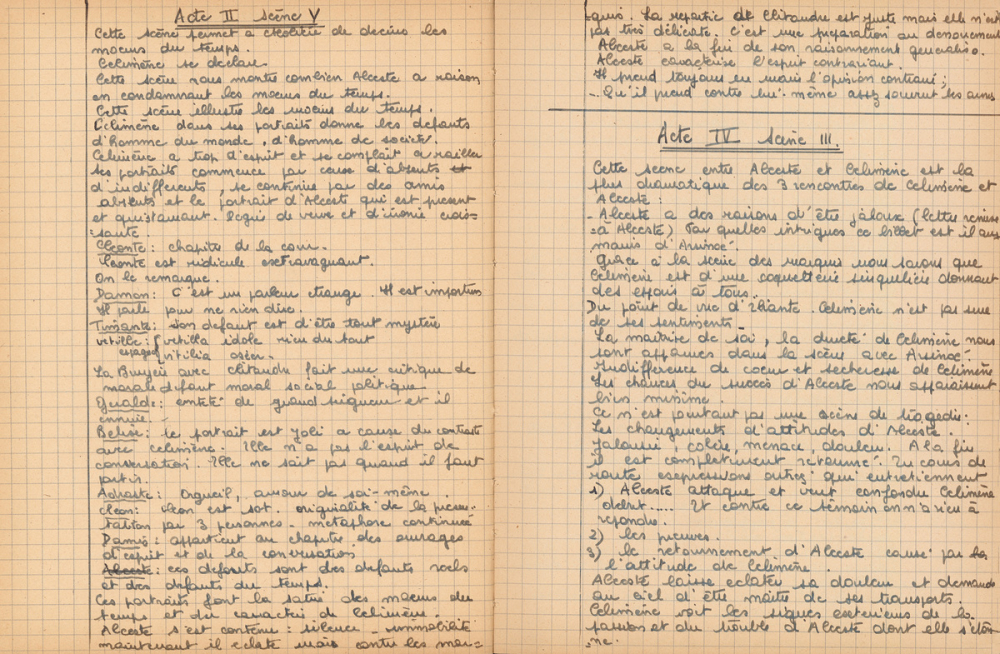 Acte II Scène V
Cette scène permet à de décrire les
moeurs du temps.
Celimène se declare
Cette scène nous montre combien Alceste a raison
en condamnant les moeurs du temps.
Cette scène illustre les moeurs du temps.
Celimène dans ses portraits donne les defauts
d'homme du monde, d'homme de société.
Celimène a trop d'esprit et se complait a railler
Les portraits commence par ceux d'absents et
d'indifferents, se continue par des amis
absents et le portrait d'Alceste qui est present
et qui Regain de verve et d'ironie crois=
sante.
Cleonte: chapitre de la cour.
Cleonte est ridicule extravaguant.
On le remarque.
Damon: C'est un parleur etrange. Il est importun
Il parle pour ne rien dire.
Timante: Son defaut est d'être tout mystère
vetille: vetilla idole rien du tout
espagnol vitilia osier.
La Bruyère avec clitandre fait une critique de
morale defaut moral social politique
Geralde: enteté de grand seigneur et il
ennuie.
Belise: le portrait est joli a cause du contraste
avec celimène. Elle n'a pas l'esprit de
conversation. Elle ne sait pas quand il faut
partir.
Adraste: Orgueil, amour de soi-même.
Cleon: Cleon est sot. originalité de la presen-
tation par 3 personnes. metaphore continuée
Damis: appartient au chapitre des ouvrages
d'esprit et de la conversation
Alceste: ces defauts sont des defauts reels
et des defauts du temps.
Ces portraits font la satire des moeurs du
temps et du caractère de Celimène.
Alceste s'est contenu: silence - immobilité
maintenant il eclate mais contre les mar=
quis. La repartie de Clitandre est juste mais elle n'est
pas très délicate. C'est une preparation au denouement
Alceste a la fin de son raisonnement generalise.
Alceste caracterise l'esprit contrariant.
Il prend toujours en main l'opinion contraire;
- Qu'il prend contre lui même assez souvent les armes
Acte IV Scène III.
Cette scene entre Alceste et Celimène est la
plus dramatique des 3 rencontres de Celimène et
Alceste:
- Alceste a des raisons d'être jaloux (lettre remise
à Alceste) Par quelles intrigues ce billet est il aux
mains d'Arsinoé.
Grâce à la scène des marquis nous savons que
Celimène est d'une coquetterie singulière donnant
des espoirs à tous.
Du point de vue d'Eliante. Celimène n'est pas sure
de ses sentiments.
La maitrise de soi, la dureté de Celimène nous
sont apparues dans la scène avec Arsinoé.
Indifference de coeur et secheresse de Celimène
Les chances du succès d'Alceste nous apparaissent
bien minime.
Ce n'est pourtant pas une scène de tragedie:
Les changements d'attitudes d'Alceste.
Jalousie, colère, menace, douleur. A la fin
il est complètement retourné. Au cours de
route expressions outrées qui entretiennent
1) Alceste attaque et veut confondre Celimène
.... Et contre ce témoin on n'a rien à
repondre.
2) les preuves.
3) le retournement d'Alceste causé par la
l'attitude de Celimène.
Alceste laisse eclater sa douleur et demande
au ciel d'être maître de ses transports.
Celimène voit les signes exterieurs de la
passion et du trouble d'Alceste dont elle s'éton
ne.